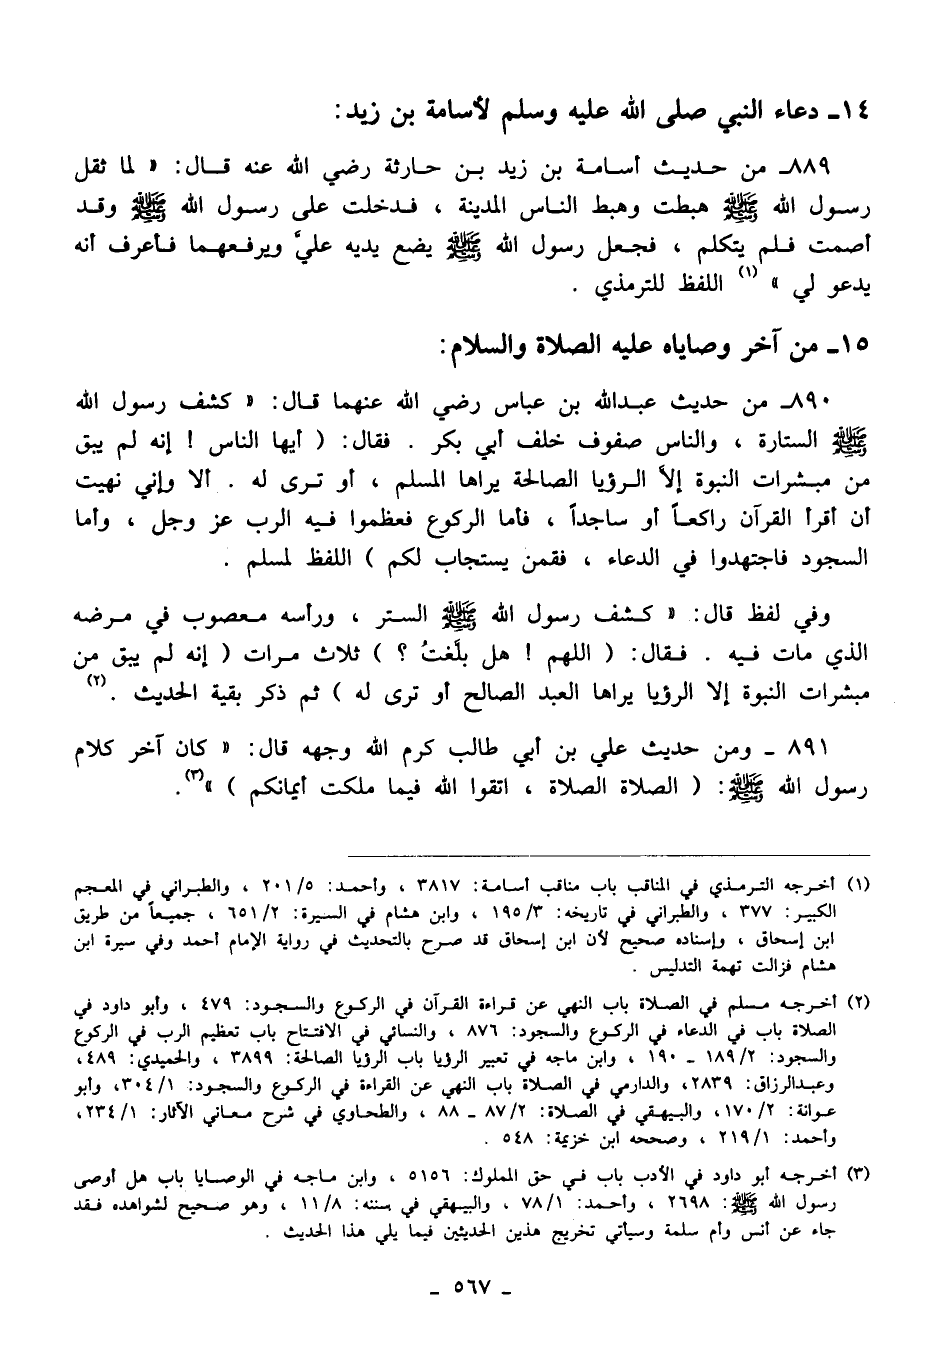 ١٤ـ دعاء النبي صلى الله عليه وسلم لأسامة بن زيد:
٨٨٩ـ من حديث أسامة بن زيد بن حارثة رضي الله عنه قال: « لما ثقل
رسول الله ﷺ هبطت وهبط الناس المدينة ، فدخلت على رسول الله ﷺ وقد
أصمت فلم يتكلم ، فجعل رسول الله ﷺ يضع يديه عليَّ ويرفعهما فأعرف أنه
يدعو لي » (١) اللفظ للترمذي .
١٥ـ من آخر وصاياه عليه الصلاة والسلام:
٨٩٠ـ من حديث عبدالله بن عباس رضي الله عنهما قال: « كشف رسول الله
ﷺ الستارة ، والناس صفوف خلف أبي بكر . فقال: ( أيها الناس ! إنه لم يبق
من مبشرات النبوة إلاَّ الرؤيا الصالحة يراها المسلم ، أو ترى له . ألا وإني نهيت
أن أقرأ القرآن راكعاً أو ساجداً ، فأما الركوع فعظموا فيه الرب عز وجل ، وأما
السجود فاجتهدوا في الدعاء ، فقمن يستجاب لكم ) اللفظ لمسلم .
وفي لفظ قال: « كشف رسول الله ﷺ الستر ، ورأسه معصوب في مرضه
الذي مات فيه . فقال: ( اللهم ! هل بلَّغتُ ؟ ) ثلاث مرات ( إنه لم يبق من
مبشرات النبوة إلا الرؤيا يراها العبد الصالح أو ترى له ) ثم ذكر بقية الحديث .(٢)
٨٩١ ـ ومن حديث علي بن أبي طالب كرم الله وجهه قال: « كان آخر كلام
رسول الله ﷺ: ( الصلاة الصلاة ، اتقوا الله فيما ملكت أيمانكم ) »(٣).
(١) أخرجه الترمذي في المناقب باب مناقب أسامة: ٣٨١٧ ، وأحمد: ٢٠١/٥ ، والطبراني في المعجم
الكبير: ٣٧٧ ، والطبراني في تاريخه: ١٩٥/٣ ، وابن هشام في السيرة: ٦٥١/٢ ، جميعاً من طريق
ابن إسحاق ، وإسناده صحيح لأن ابن إسحاق قد صرح بالتحديث في رواية الإمام أحمد وفي سيرة ابن
هشام فزالت تهمة التدليس .
(٢) أخرجه مسلم في الصلاة باب النهي عن قراءة القرآن في الركوع والسجود: ٤٧٩ ، وأبو داود في
الصلاة باب في الدعاء في الركوع والسجود: ٨٧٦ ، والنسائي في الافتتاح باب تعظيم الرب في الركوع
والسجود: ١٨٩/٢ ـ ١٩٠ ، وابن ماجه في تعبير الرؤيا باب الرؤيا الصالحة: ٣٨٩٩ ، والحميدي: ٤٨٩،
وعبدالرزاق: ٢٨٣٩، والدارمي في الصلاة باب النهي عن القراءة في الركوع والسجود: ٣٠٤/١، وأبو
عوانة: ١٧٠/٢، والبيهقي في الصلاة: ٨٧/٢ ـ ٨٨ ، والطحاوي في شرح معاني الآثار: ٢٣٤/١،
وأحمد: ٢١٩/١ ، وصححه ابن خزيمة: ٥٤٨ .
(٣) أخرجه أبو داود في الأدب باب في حق المملوك: ٥١٥٦ ، وابن ماجه في الوصايا باب هل أوصى
رسول الله ﷺ: ٢٦٩٨ ، وأحمد: ٧٨/١ ، والبيهقي في سننه: ١١/٨ ، وهو صحيح لشواهده فقد
جاء عن أنس وأم سلمة وسيأتي تخريج هذين الحديثين فيما يلي هذا الحديث .
ـ ٥٦٧ ـ